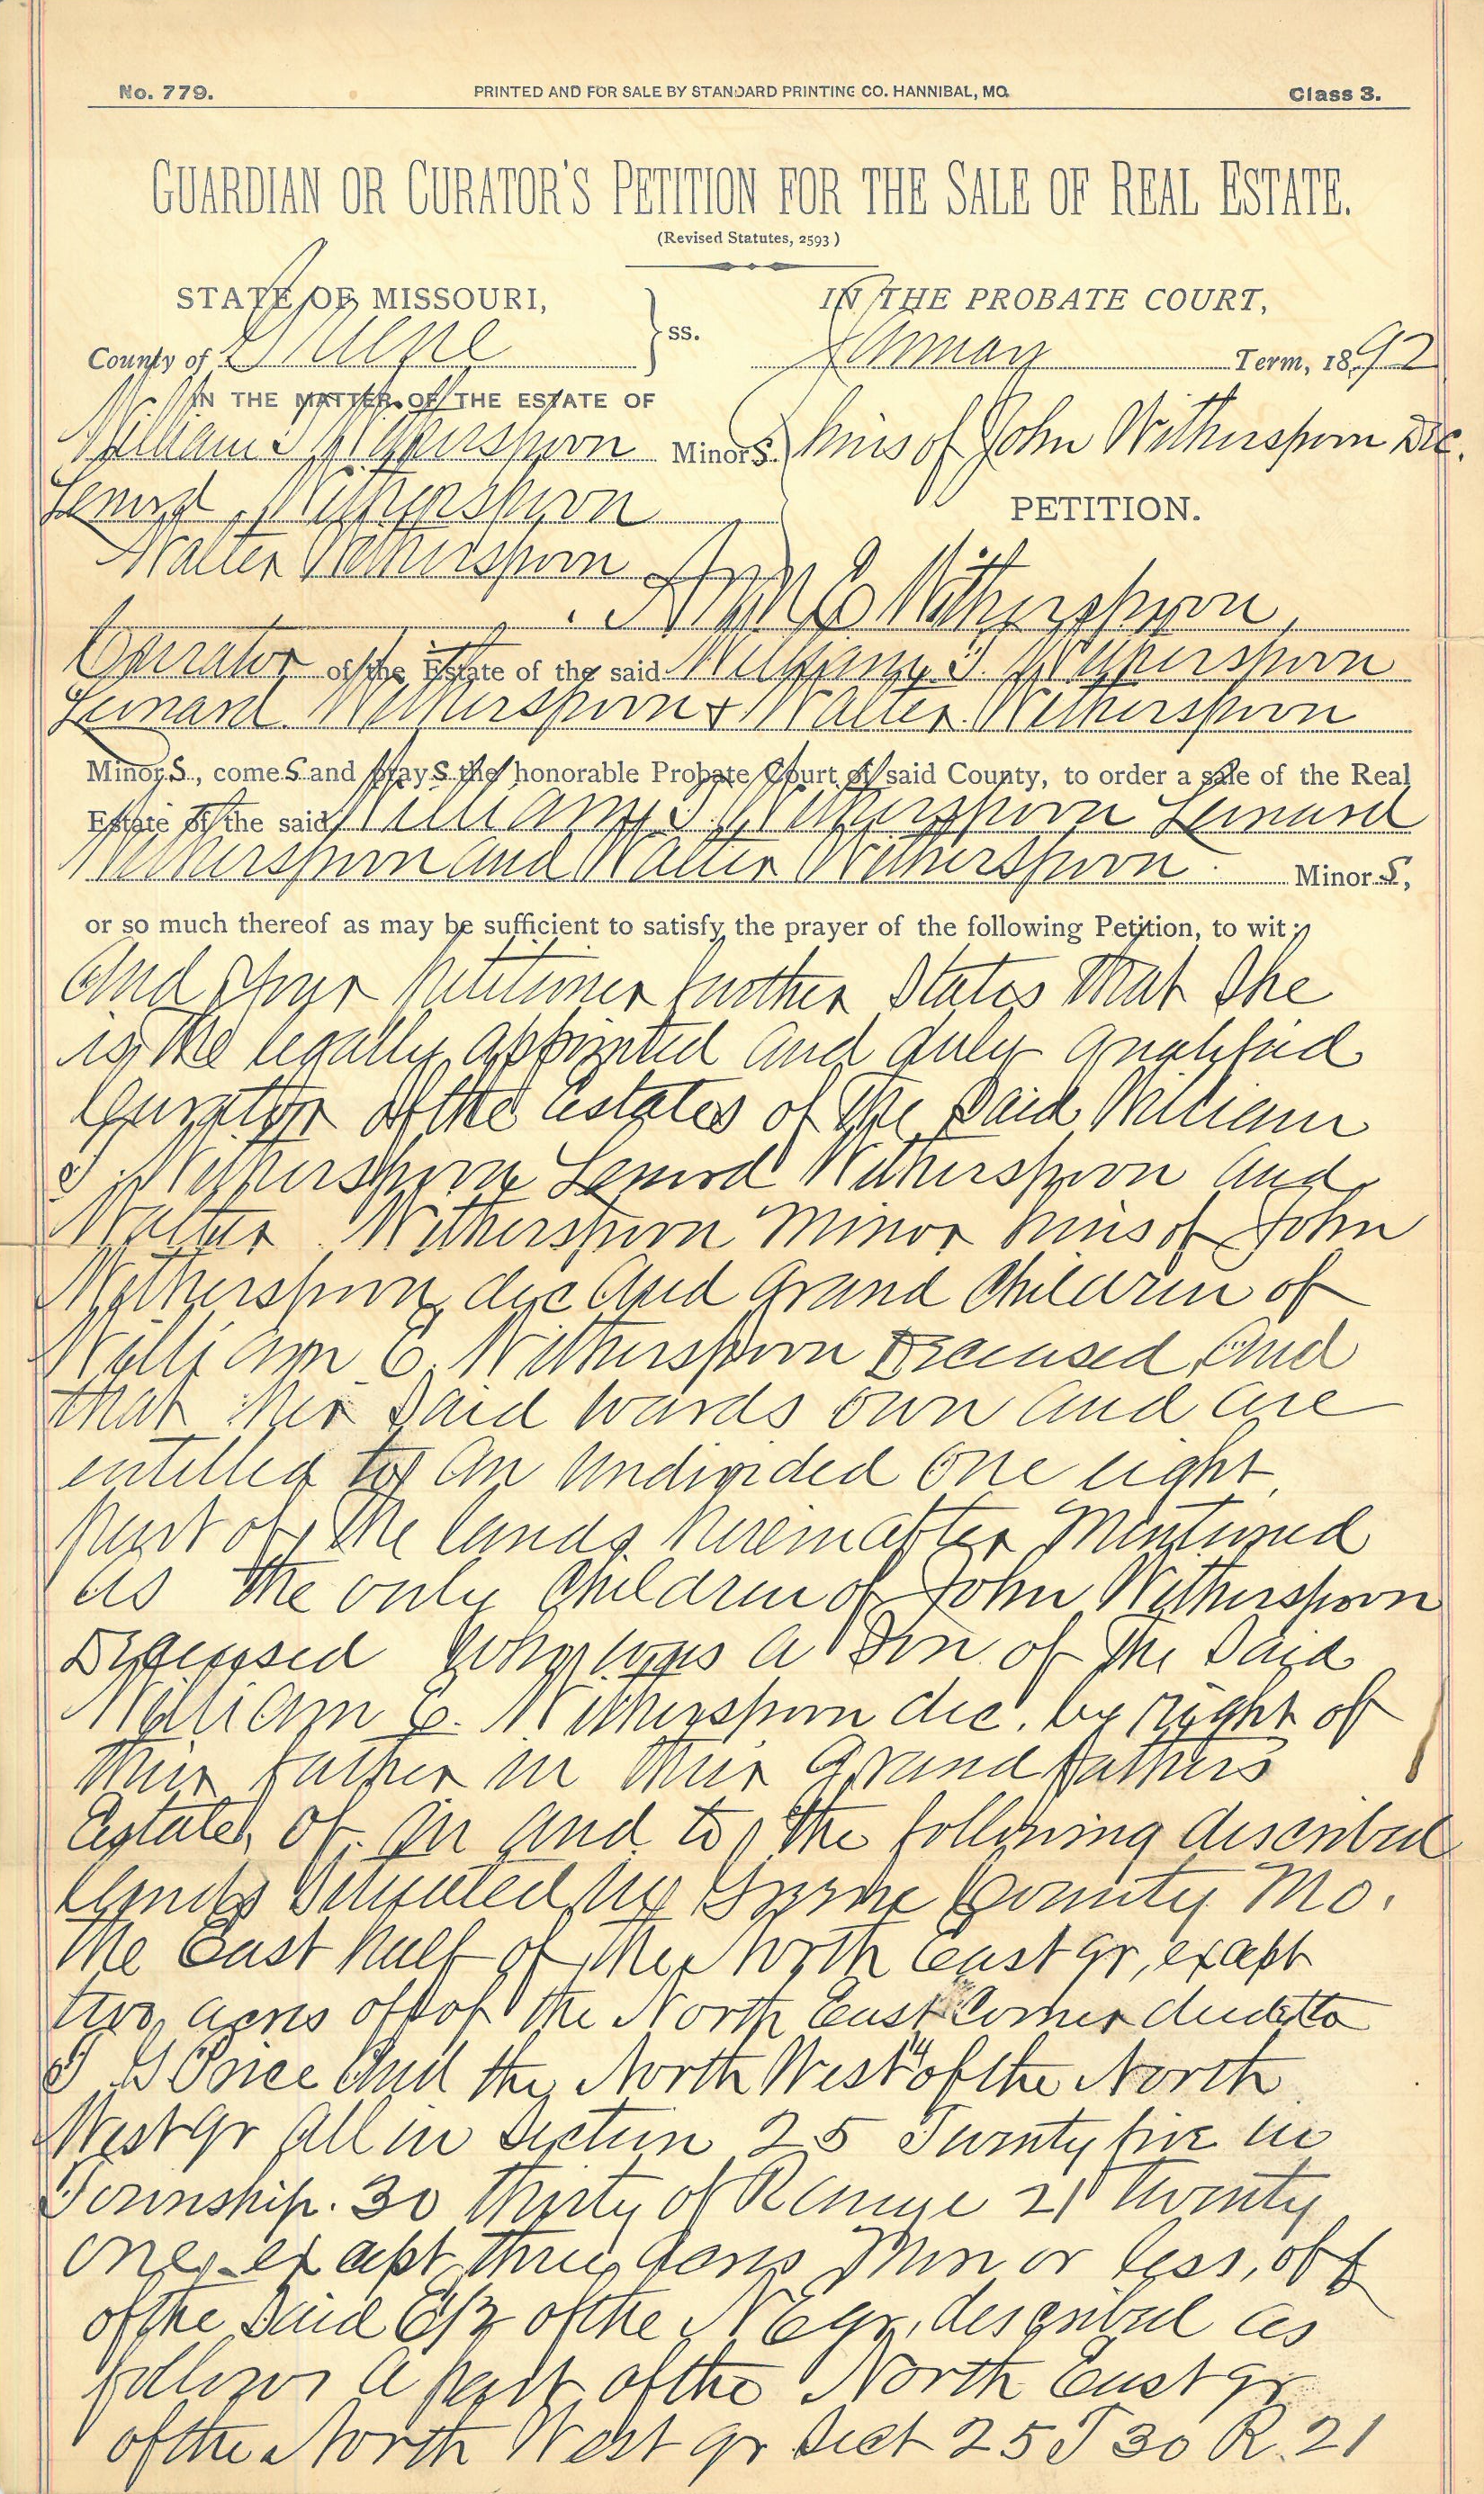 No. 779. PRINTED AND FOR SALE BY STANDARD PRINTING CO. HANNIBAL, MO. Class 3.
GUARDIAN OR CURATOR'S PETITION FOR THE SALE OF REAL ESTATE.
(Revised Statutes, 2593)
STATE OF MISSOURI, } ss. IN THE PROBATE COURT,
County of Greene January Term, 1892
IN THE MATTER OF THE ESTATE OF
William T Witherspoon Minors. heirs of John Witherspoon Dec.
Lenord Witherspoon PETITION.
Walter Witherspoon
Ann E Witherspoon,
Currator of the Estate of the said William T. Witherspoon
Leinard Witherspoon & Walter Witherspoon
Minors, comes and prays the honorable Probate Court of said County, to order a sale of the Real
Estate of the said William T Witherspoon Leinard
Witherspoon and Walter Witherspoon Minors,
or so much thereof as may be sufficient to satisfy the prayer of the following Petition, to wit:
And your petitioner further States that She
is the legally appointed and duly qualified
Curator of the Estates of the said William
T. Witherspoon Lenord Witherspoon and
Walter Witherspoon minor heirs of John
Witherspoon dec and grand Children of
William E. Witherspoon Deceased, and
that her said wards own and are
entitled to an undivided one eight
part of the lands hereinafter mentioned
as the only Children of John Witherspoon
Deceased who was a Son of the said
William E. Witherspoon dec. by right of
their father in their grand fathers
Estate, of in and to the following discribed
lands situated in Greene County Mo.
The East half of the North East qr, except
two acres off of the North East Corner deeded to
T G Price and the North West 1/4 of the North
West qr all in Section 25 Twenty five in
Township. 30 thirty of Range 21 twenty
one, except three acres more or less, off
of the said E1/2 of the N E qr, described as
follows a part of the North East qr
of the North West qr Sect 25 T 30 R. 21